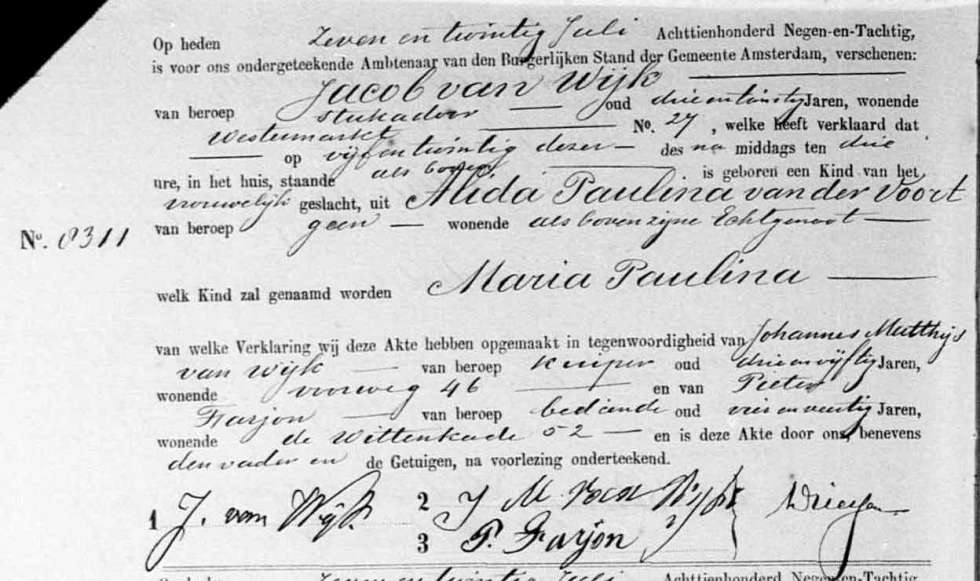 Op heden Zeven en twintig Juli Achttienhonderd Negen-en-Tachtig,
is voor ons ondergeteekende Ambtenaar van den Burgerlijken Stand der Gemeente Amsterdam, verschenen:
Jacob van Wijk
van beroep stukadoor oud drie en twintig Jaren, wonende
Westermarkt No. 27, welke heeft verklaard dat
op vijf en twintig dezer des na middags ten drie
ure, in het huis, staande als boven is geboren een Kind van het
vrouwelijk geslacht, uit Alida Paulina van der Voort
van beroep geen wonende als boven zijne Echtgenoot
No. 8311
welk Kind zal genaamd worden Maria Paulina
van welke Verklaring wij deze Akte hebben opgemaakt in tegenwoordigheid van Johannes Matthijs
van Wijk van beroep kuiper oud drie en vijftig Jaren,
wonende 46 en van Pieter
Farjon van beroep bediende oud vier en veertig Jaren,
wonende de Wittenkade 52 en is deze Akte door ons, benevens
den vader en de Getuigen, na voorlezing onderteekend.
1 J. van Wijk 2 J M. van Wijk
3 P. Farjon
Op heden Zeven en twintig Juli Achttienhonderd Negen-en-Tachtig,